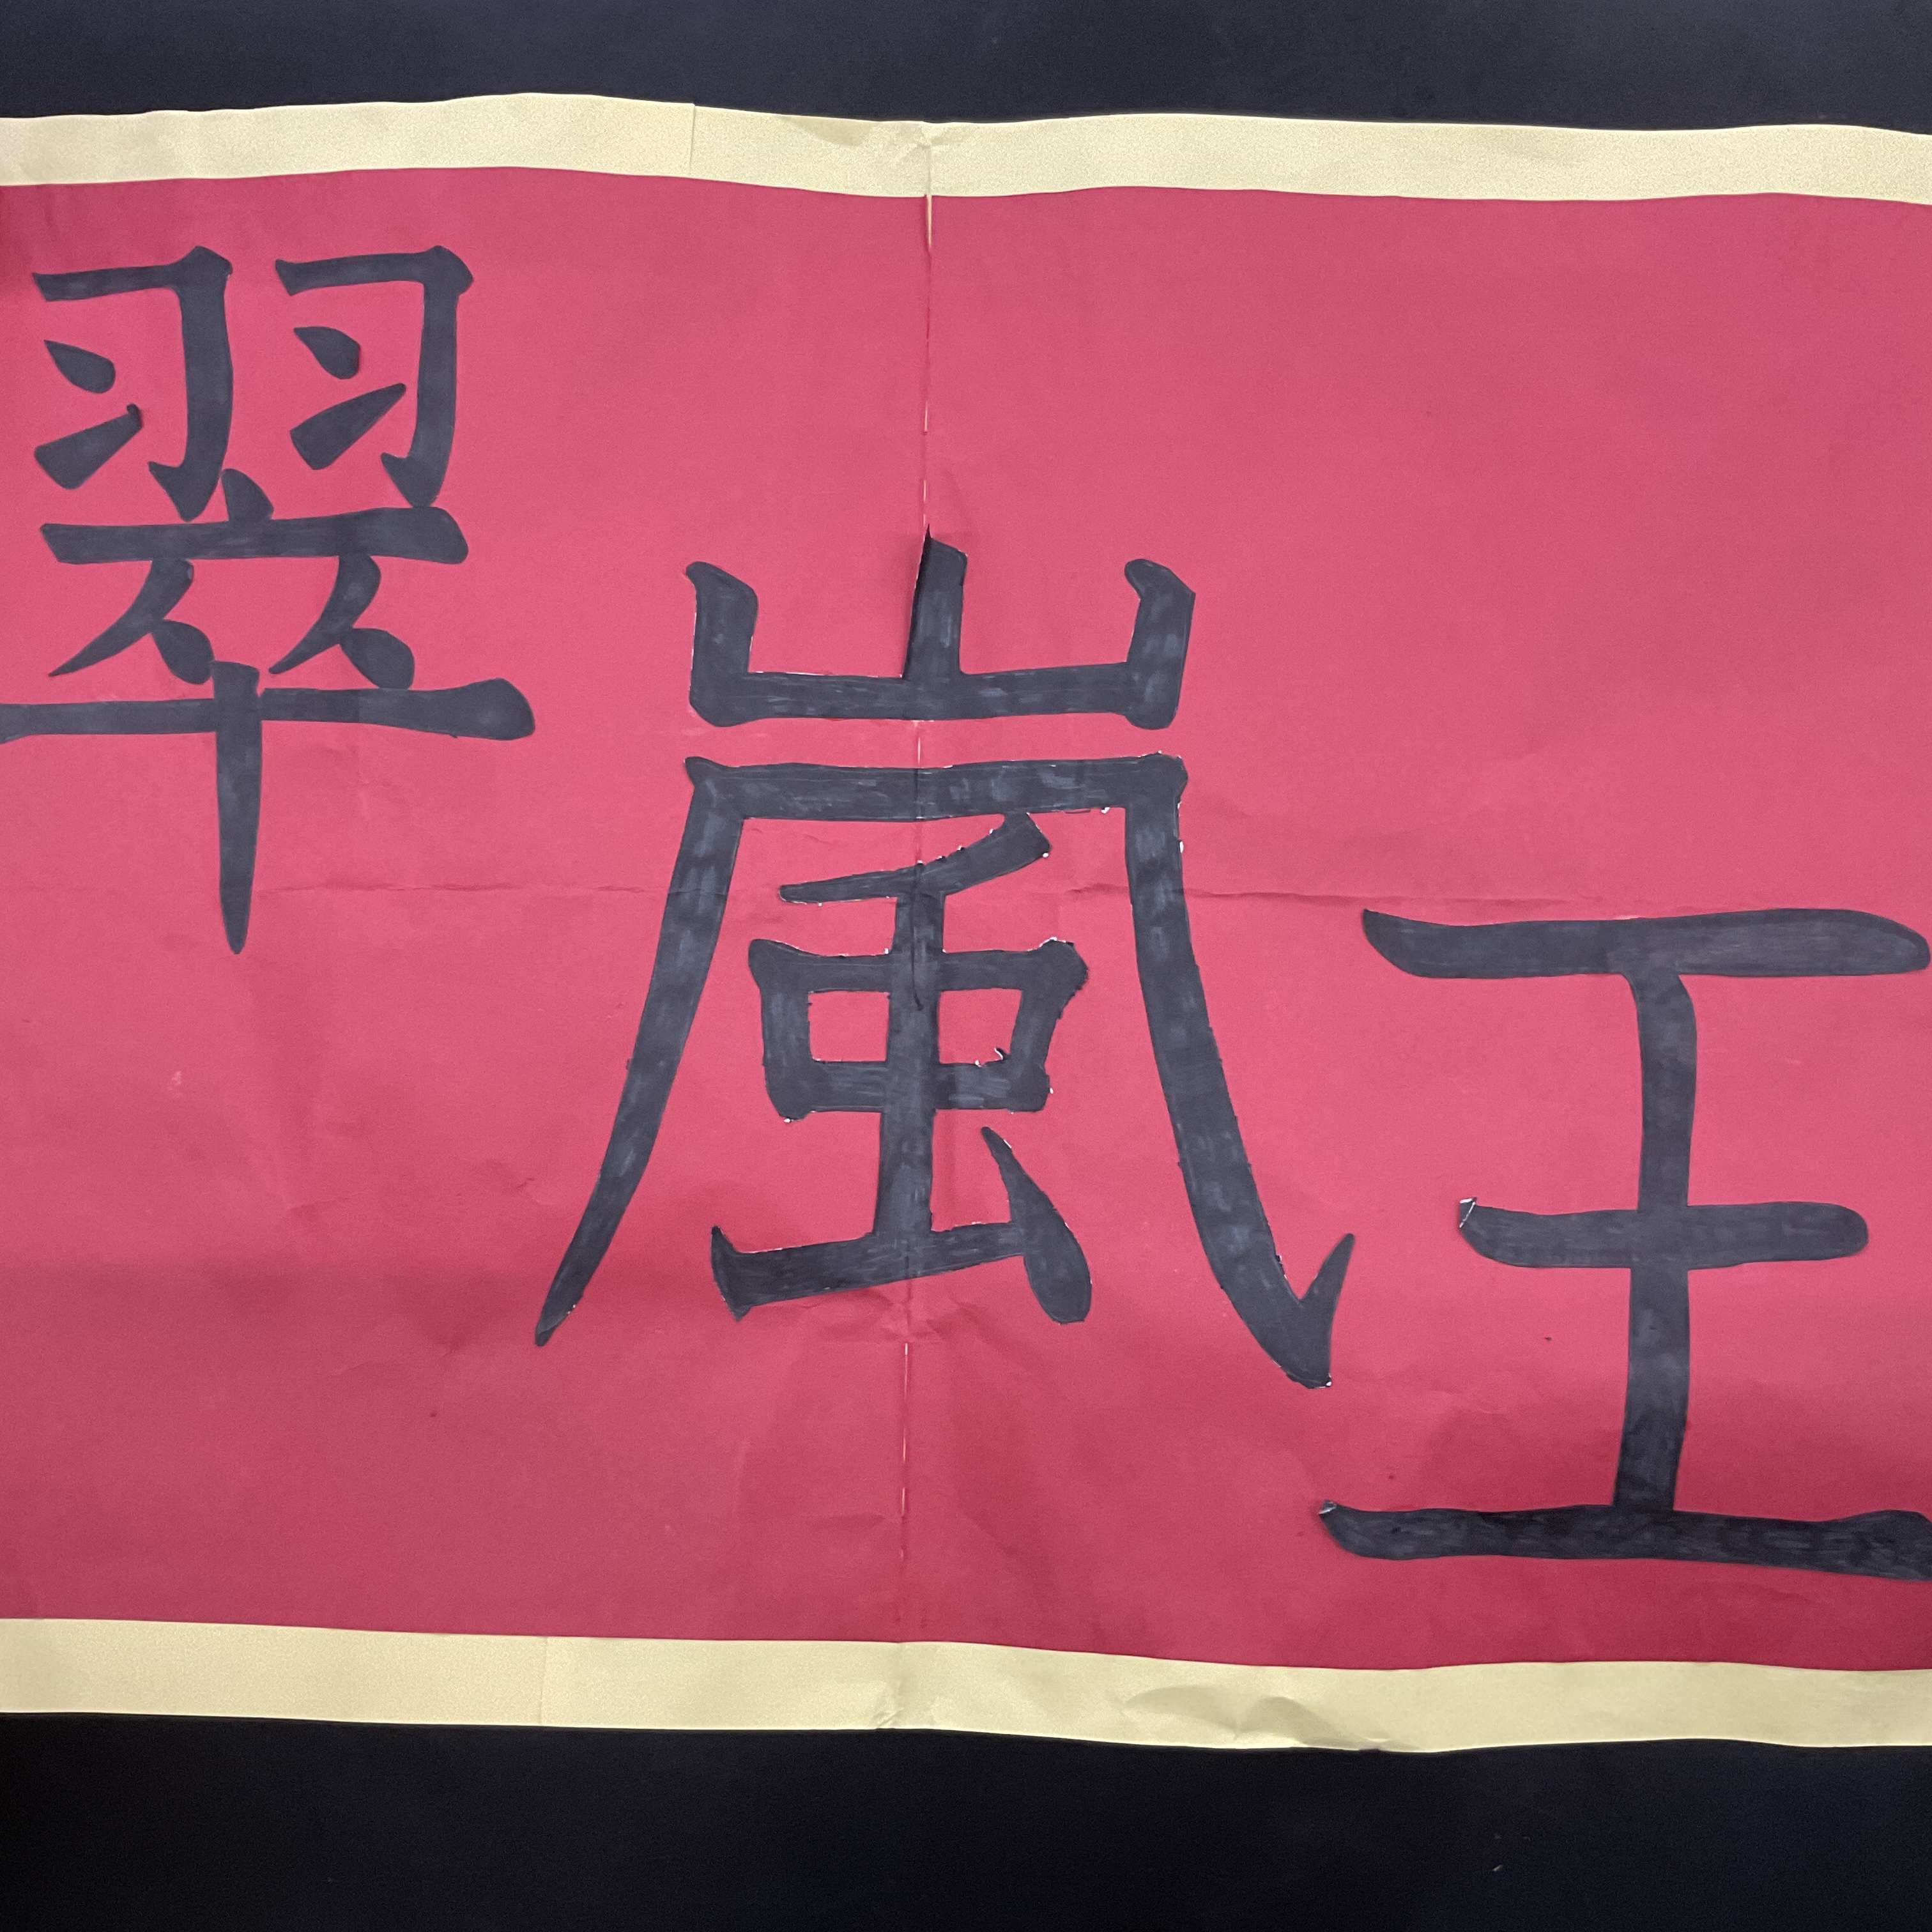 翠嵐王